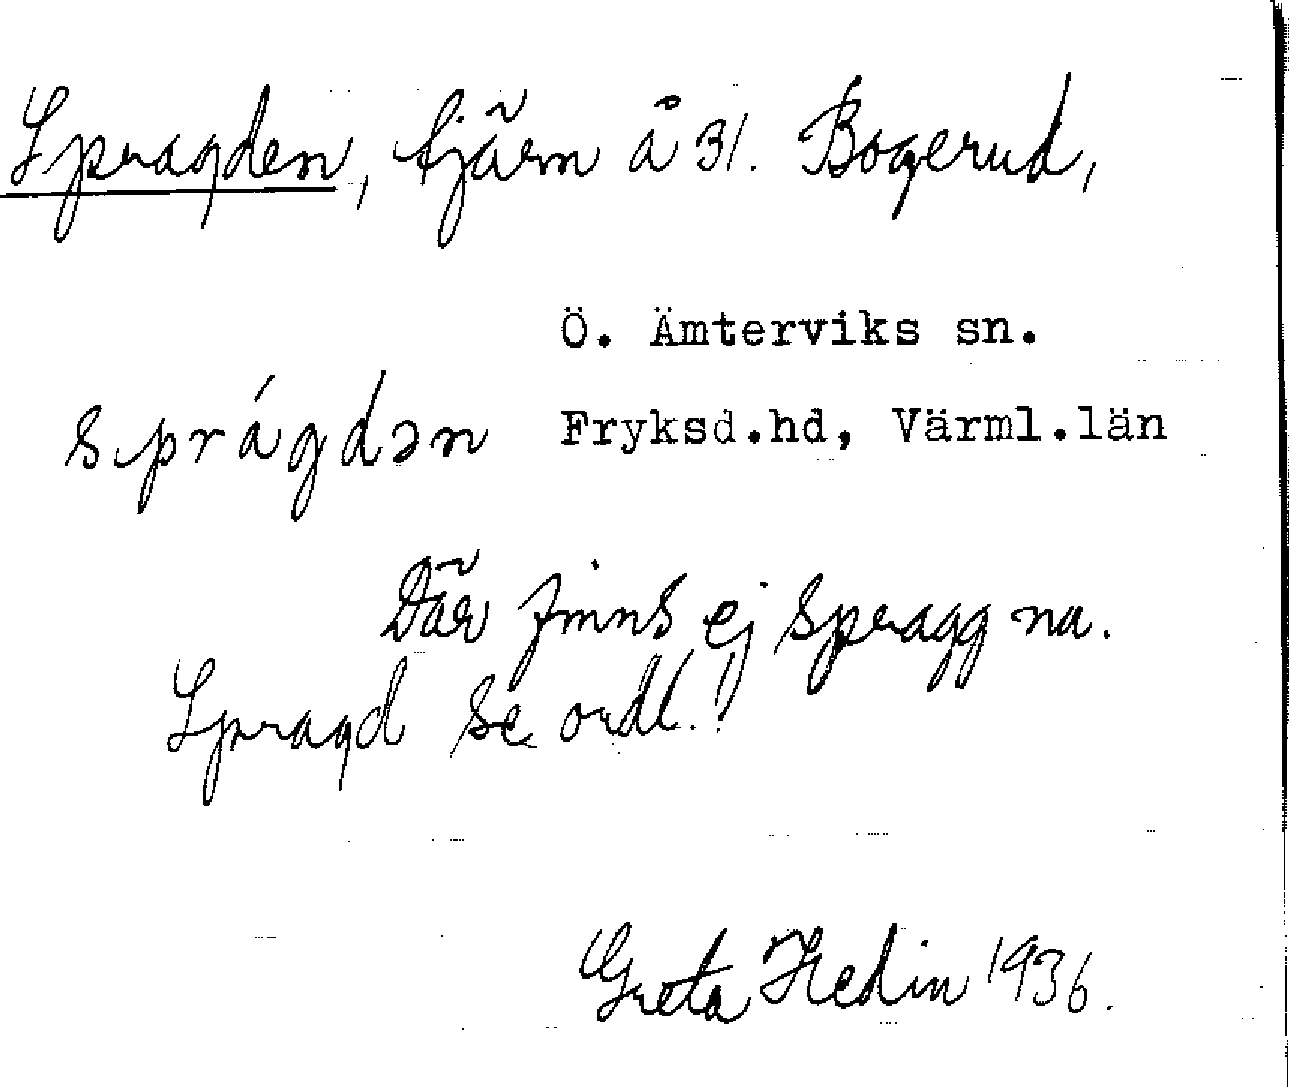 Spragden, tjärn å 31. Bogerud,
Ö. Ämterviks sn.
sprágdən Fryksd.hd, Värml.län
Där finns ej spragg na.
Spragd se ordl.!
Greta Hedin 1936.